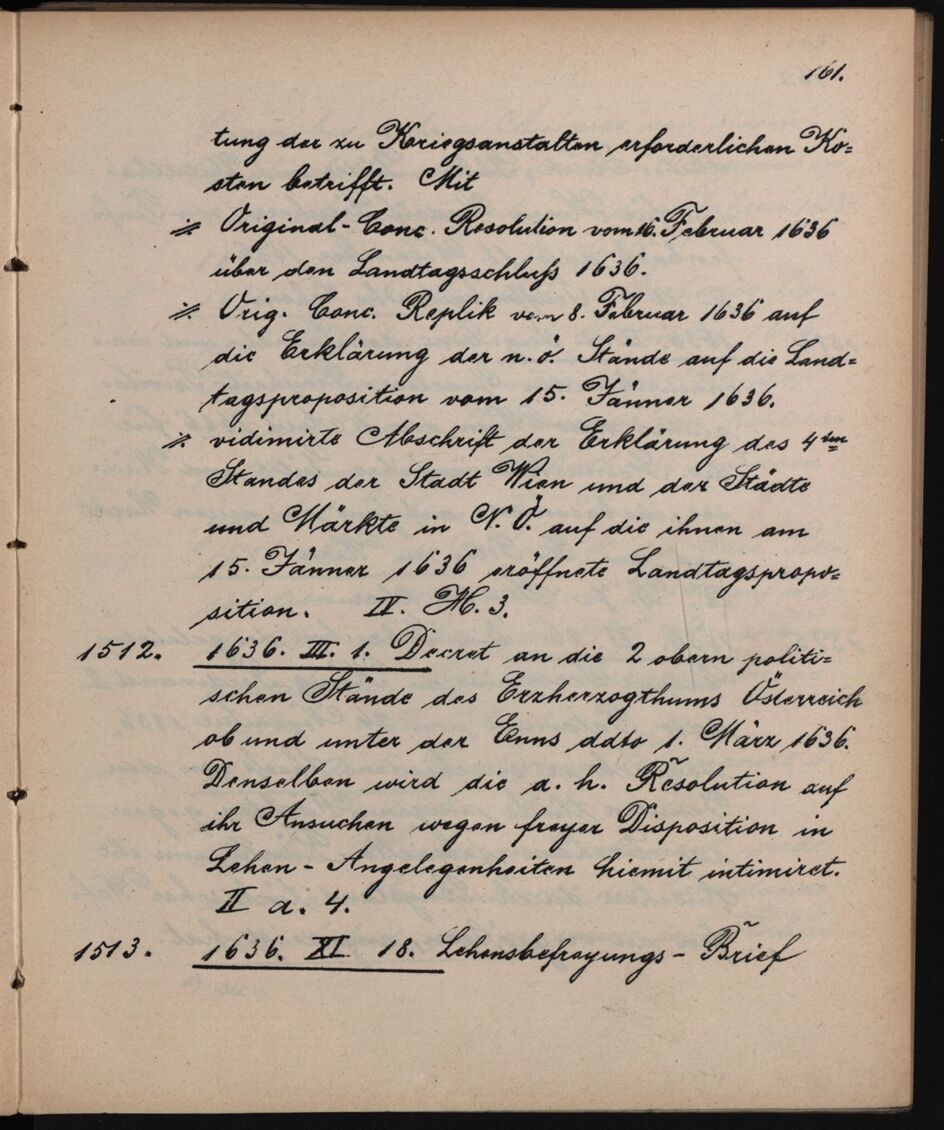 161.
tung der zu Kriegsanstalten erforderlichen Ko=
sten betrifft. Mit
⁒ Original-Conc. Resolution vom 16. Februar 1636
über den Landtagsschluß 1636.
⁒ Orig. Conc. Replik vom 8. Februar 1636 auf
die Erklärung der n.ö. Stände auf die Land=
tagsproposition vom 15. Jänner 1636.
⁒ vidimirte Abschrift der Erklärung des 4ten
Standes der Stadt Wien und der Städte
und Märkte in N.Ö. auf die ihnen am
15. Jänner 1636 eröffnete Landtagspropo=
sition. IV. H. 3.
1512. 1636. III. 1. Decret an die 2 obern politi=
schen Stände des Erzherzogthums Österreich
ob und unter der Enns ddto 1. März 1636.
Denselben wird die a. h. Resolution auf
ihr Ansuchen wegen freyer Disposition in
Lehen-Angelegenheiten hiemit intimiret.
II a. 4.
1513. 1636. XI 18. Lehensbefreyungs-Brief